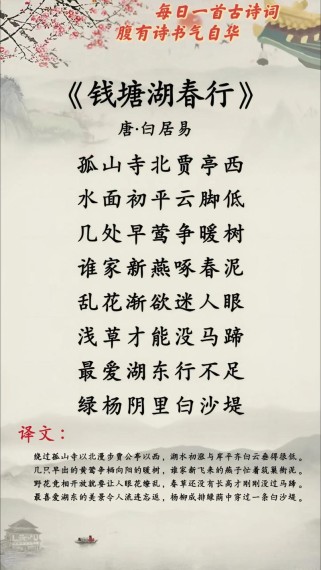 每日一首古诗词
腹有诗书气自华
《钱塘湖春行》
唐·白居易
孤山寺北贾亭西
水面初平云脚低
几处早莺争暖树
谁家新燕啄春泥
乱花渐欲迷人眼
浅草才能没马蹄
最爱湖东行不足
绿杨阴里白沙堤
译文：
绕过孤山寺以北漫步贾公亭以西，湖水初涨与岸平齐白云垂得很低。
几只早出的黄莺争栖向阳的暖树，谁家新飞来的燕子忙着筑巢衔泥。
野花竞相开放就要让人眼花缭乱，春草还没有长高才刚刚没过马蹄。
最喜爱湖东的美景令人流连忘返，杨柳成排绿荫中穿过一条白沙堤。